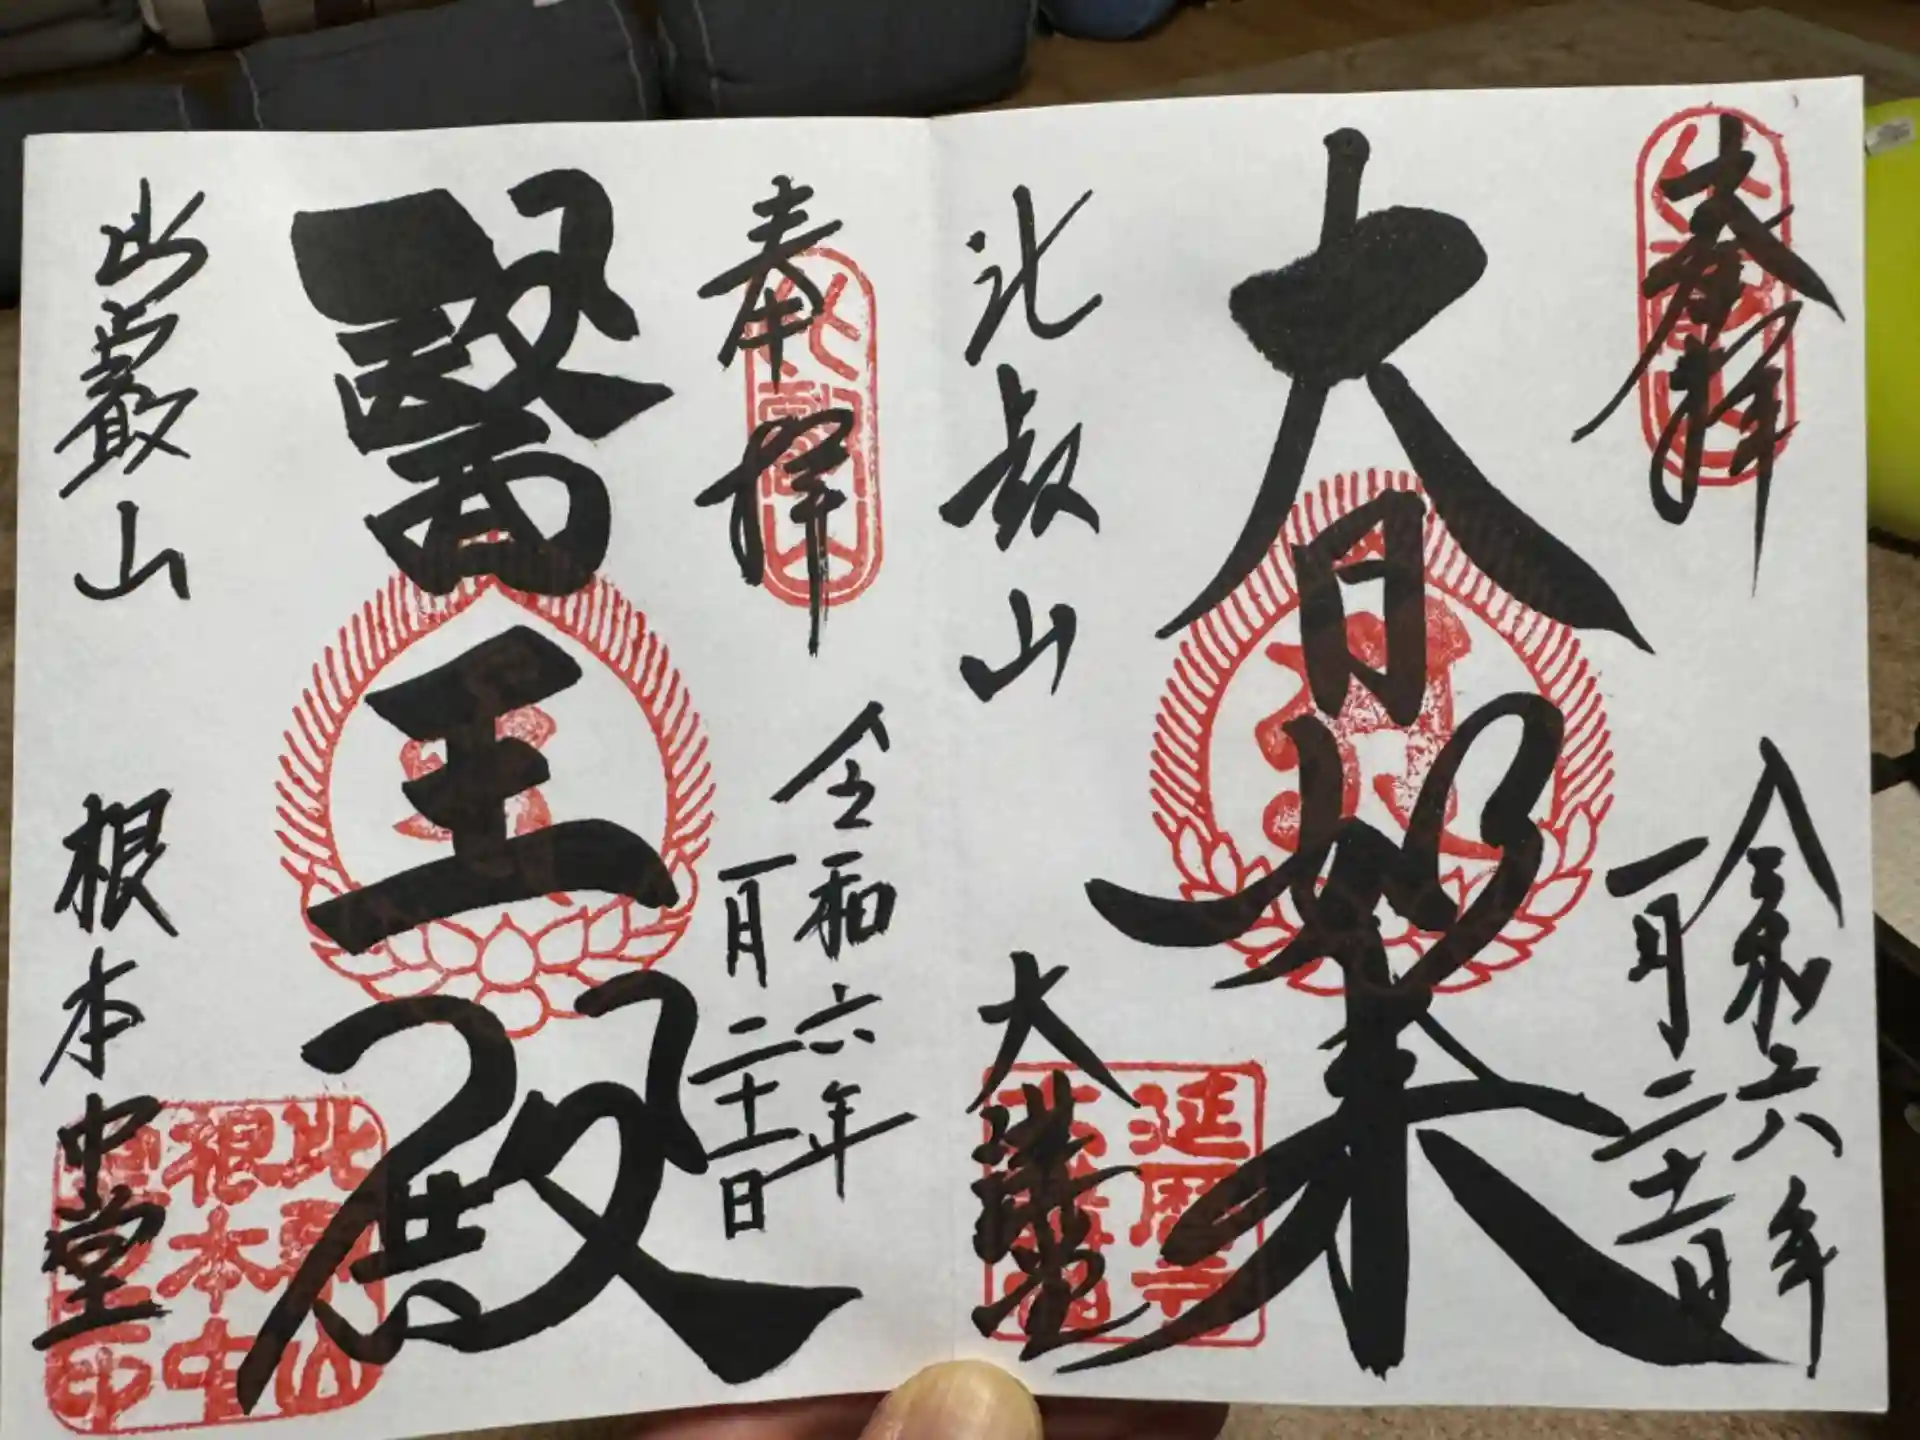 奉拝
令和六年
一月二十一日
大日如来
比叡山
大講堂
延暦寺
奉拝
比叡山
令和六年
一月二十一日
醫王殿
比叡山
根本中堂
比叡山
根本中
堂
印